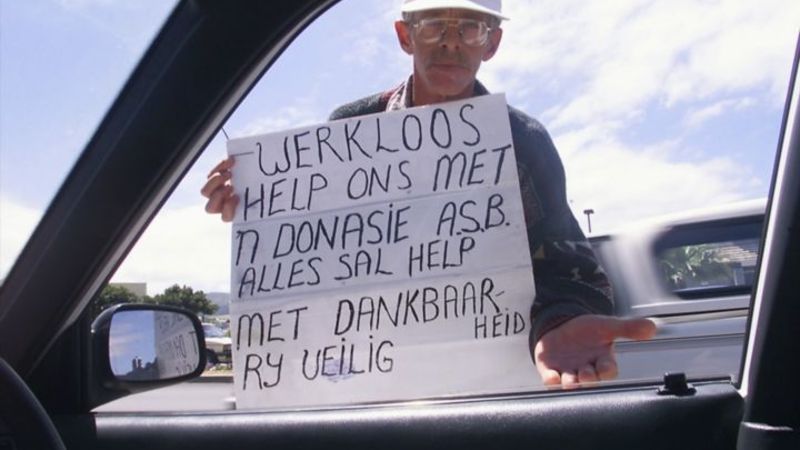 WERKLOOS
HELP ONS MET
'N DONASIE A.S.B.
ALLES SAL HELP
MET DANKBAAR-
HEID
RY VEILIG